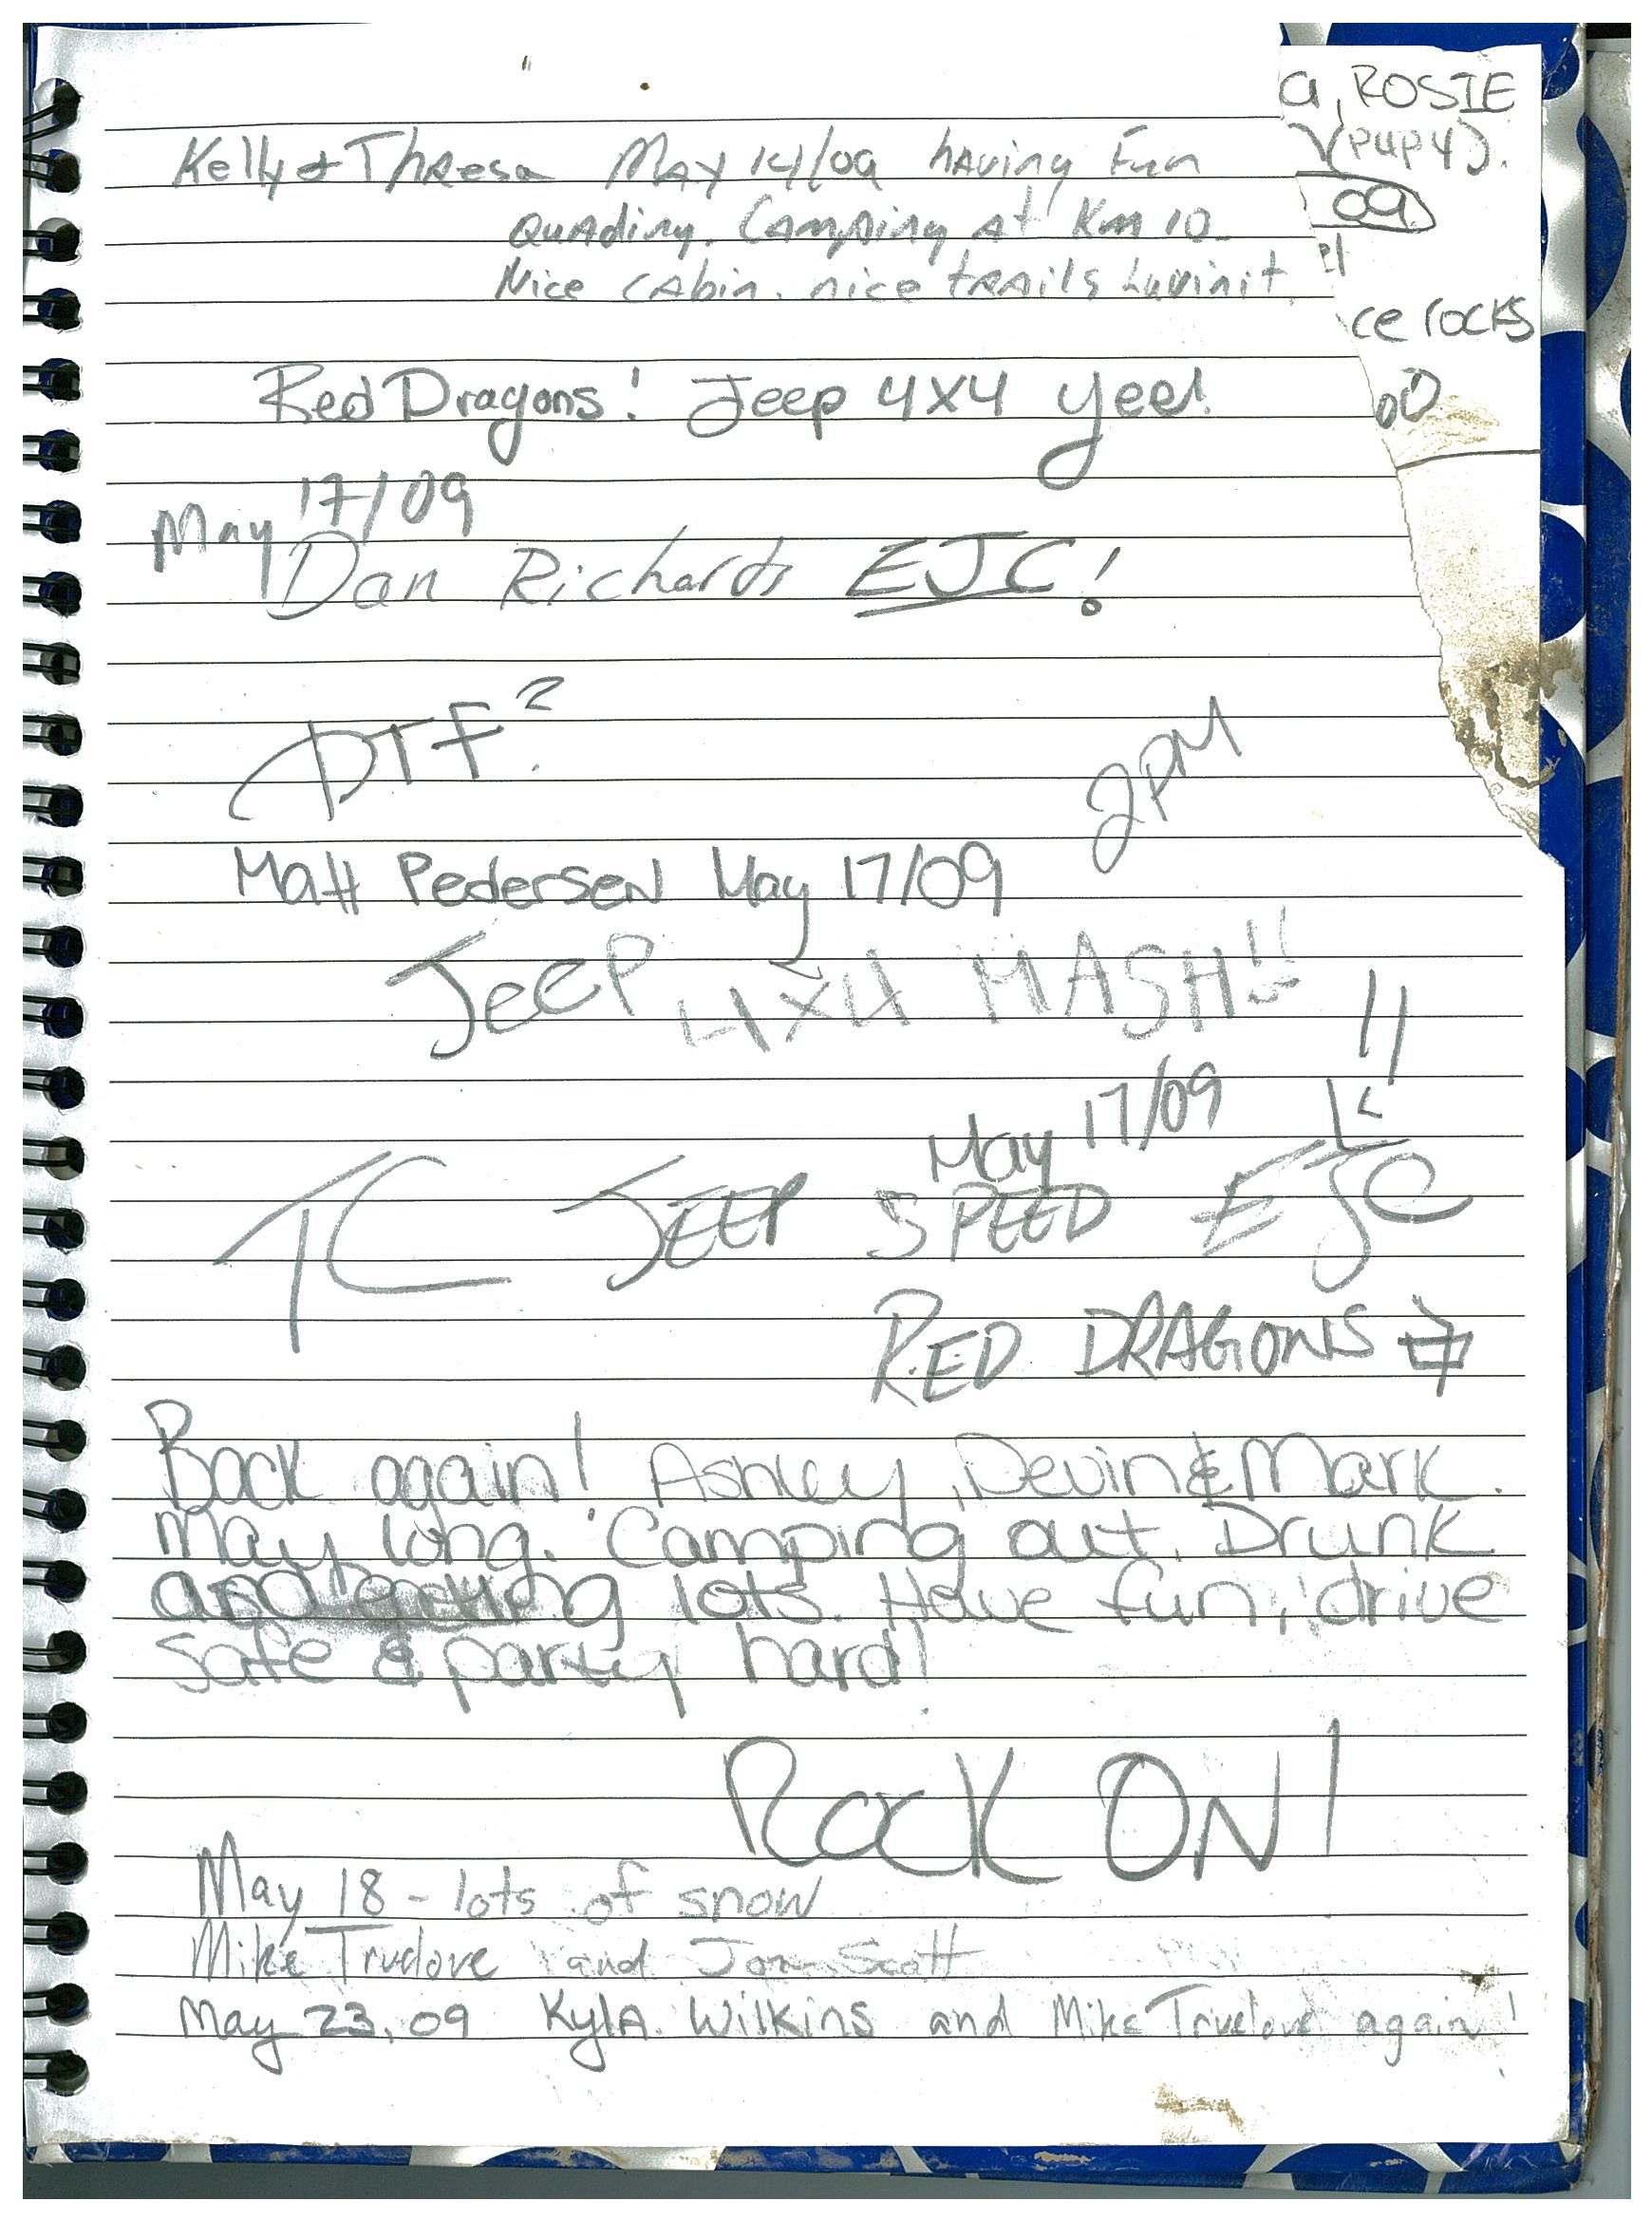 a, ROSIE
(PUPY).
09
el
ce rocks
Kelly & Theresa May 14/09 having Fun
Quading. Camping at Km 10
Nice cabin. nice trails Luvinit.
Red Dragons! Jeep 4x4 yee!
May 17/09
Dan Richards EJC!
DTF?
2PM
Matt Pedersen May 17/09
JeeP 4x4 MASH!!
May 17/09
TC JEEP SPEED EJC
RED DRAGONS
Back again! Ashley, Devin & Mark.
May long. Camping out. Drunk
and lots. Have fun, drive
safe & party hard!
Rock ON!
May 18 - lots of snow
Mike Truelove and Scott
May 23, 09 Kyla Wilkins and Mike Truelove again!